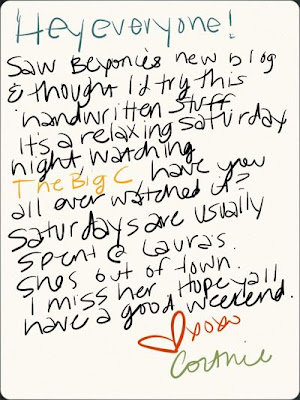 Hey everyone!
Saw Beyonce's new blog
& thought I'd try this
handwritten stuff.
It's a relaxing saturday
night watching
The Big C have you
all ever watched it?
Saturdays are usually
spent @ Laura's.
She's out of town.
I miss her. Hope y'all
have a good weekend.
xoxo